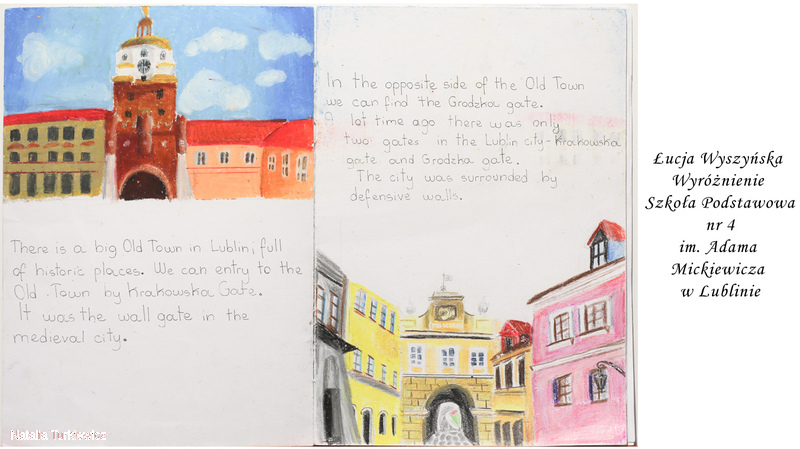 There is a big Old Town in Lublin, full
of historic places. We can entry to the
Old Town by Krakowska Gate.
It was the wall gate in the
medieval city.
In the opposite side of the Old Town
we can find the Grodzka gate.
A lot time ago there was only
two gates in the Lublin city - Krakowska
gate and Grodzka gate.
The city was surrounded by
defensive walls.
Łucja Wyszyńska
Wyróżnienie
Szkoła Podstawowa
nr 4
im. Adama
Mickiewicza
w Lublinie
Natalia Turkiewicz